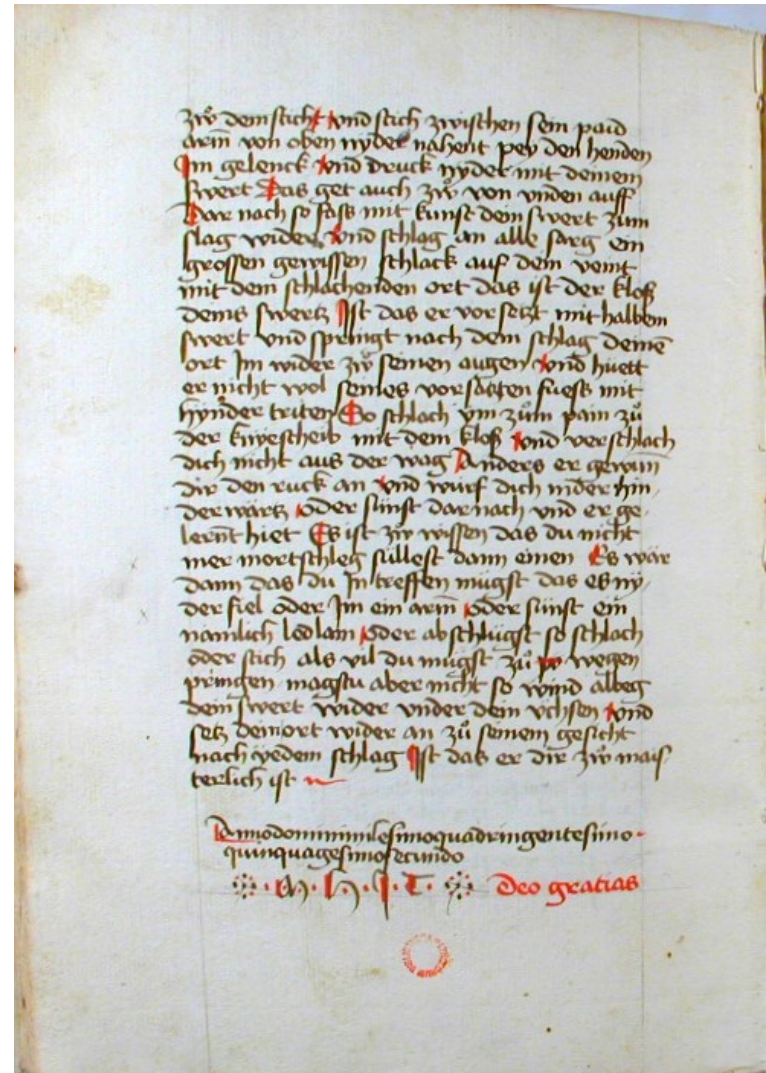 zẘ dem sticht vnd stich zwischen sein paid
arm̄ von oben nyder nahent pey den henden
Im gelenck vnd druck nyder mit deinem
swert Das get auch zẘ von vnden auff
Dar nach so fass mit kunst dein swert zum
slag wider vnd schlag an alle sarg ein
grossen gewissen schlack auf dem veint
mit dem schlachenden ort das ist der kloß
deins swertz Ist das er vor setzt mit halbem
swert vnd springt nach dem schlag deinē
ort Im wider zẘ seinen augen vnd huett
er nicht wol seines vor satzten fuess mit
hynder triten So schlach ym zům pain zů
der knyescheib mit dem kloß vnd verschlach
dich nicht aus der wag Anders er gewun̄
dir den ruck an vnd wurf dich in der hin-
derwärtz oder sünst dar nach vnd er ge-
lernt hiet Es ist zẘ wissen das du nicht
mer mortschleg süllest dann einen Es wär
dann das du In treffen mügst das es ny-
der fiel oder Im ein arm̄ oder sünst ein
namlich led lam oder abschlügst so schlach
oder stich als vil du mügst zů wegen
pringen magstu aber nicht so wind albeg
dein swert wider vnder dein vchsen vnd
setz dein ort wider an zů seinem gesicht
nach yedem schlag Ist das er dir zẘ mais-
terlich ist
Anno domini milesimo quadringentesimo-
quinquagesimo secundo
Deo gratias